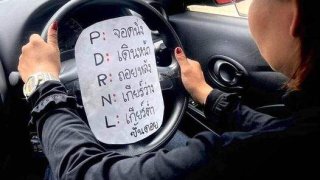 P: จอดนิ่ง
D: เดินหน้า
R: ถอยหลัง
N: เกียร์ว่าง
L: เกียร์ต่ำ
ขึ้นดอย